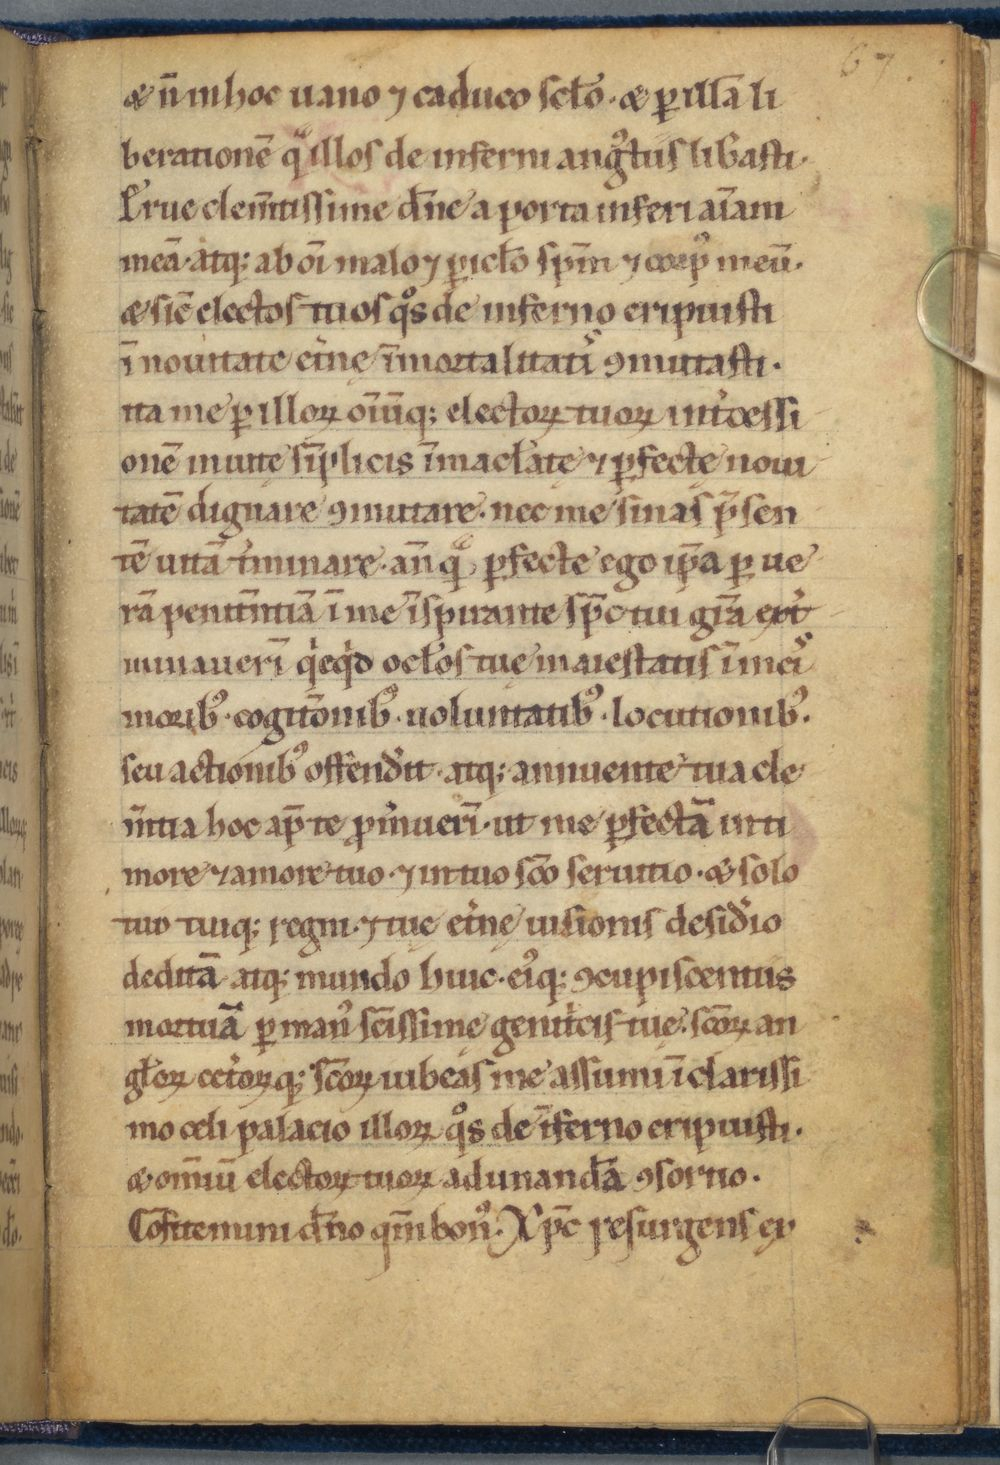 67
& n̄ in hoc uano ⁊ caduco sc̄lo · & ꝑ illā li
beratione̅ qͣ illos de inferni angꝰtiis lib̅asti ·
Erue clem̅tissime dn̅e a porta inferi ai̅am
mea̅ · atq; ab oi̅ malo ⁊ ꝑicl̅o spm̅ ⁊ corpꝰ meu̅ ·
& sic̅ electos tuos qͦs de inferno eripuisti
i̅ nouitate et̅ne̜ i̅mortalitatis ꝯmutasti ·
ita me ꝑ illoꝝ oi̅u̅q; electoꝝ tuoꝝ int̅cessi
one̅ in uite̜ si̅plicis i̅maclate̜ ⁊ ꝑfecte̜ noui
tate̅ dignare ꝯmutare · nec me sinas p̅sen
te̅ uita̅ t̅minare · an̅ qͣ ꝑfecte ego ip̅a ꝑ ue
ra̅ penite̅tia̅ i̅ me i̅spirante spc̅ tui gr̅a ext̅
minaueri̅ qͥcqͥd ocl̅os tue̜ maiestatis i̅ meis
moribꝰ · cogito̅nibꝰ · uoluntatibꝰ · locutionibꝰ ·
seu actionibꝰ offend̅it · atq; annuente tua cle
m̅tia hoc ap̅ te ꝓm̅ueri̅ · ut me ꝑfecta̅ in ti
more ⁊ amore tuo · ⁊ in tuo sc̅o seruitio · & solo
tuo tuiq; regni · ⁊ tue̜ et̅ne̜ uisionis desid̅io
dedita̅ atq; mundo huic · eiꝰq; ꝯcupiscentiis
mortua̅ ꝑ manꝰ sc̅issime̜ genit̅cis tue̜ · sc̅oꝝ an
gl̅oꝝ cet̅oꝝq; sc̅oꝝ iubeas me assumi i̅ clarissi
mo celi palacio illoꝝ qͦs de i̅ferno eripuisti ·
& omniu̅ electoꝝ tuoꝝ adunanda̅ ꝯsortio ·
Cofitemini dn̅o qm̅ bonꝰ · Xpc̅ resurgens ex